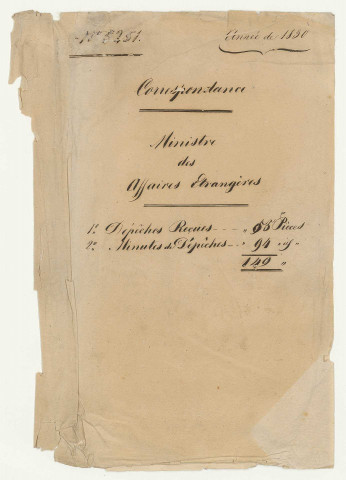 No 3251.
Année de 1830
Correspondance
Ministre
des
Affaires Etrangères
1o Dépêches Reçues - - - „ 55 Pièces
2o Minutes de Dépêches - - „ 94 „
149 „